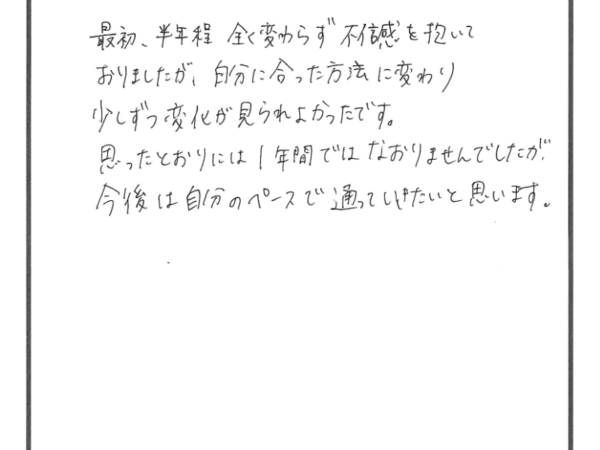 最初、半年程 全く変わらず 不信感を抱いて
おりましたが、自分に合った方法に変わり
少しずつ変化が見られよかったです。
思ったとおりには1年間ではなおりませんでしたが、
今後は自分のペースで通っていけたいと思います。